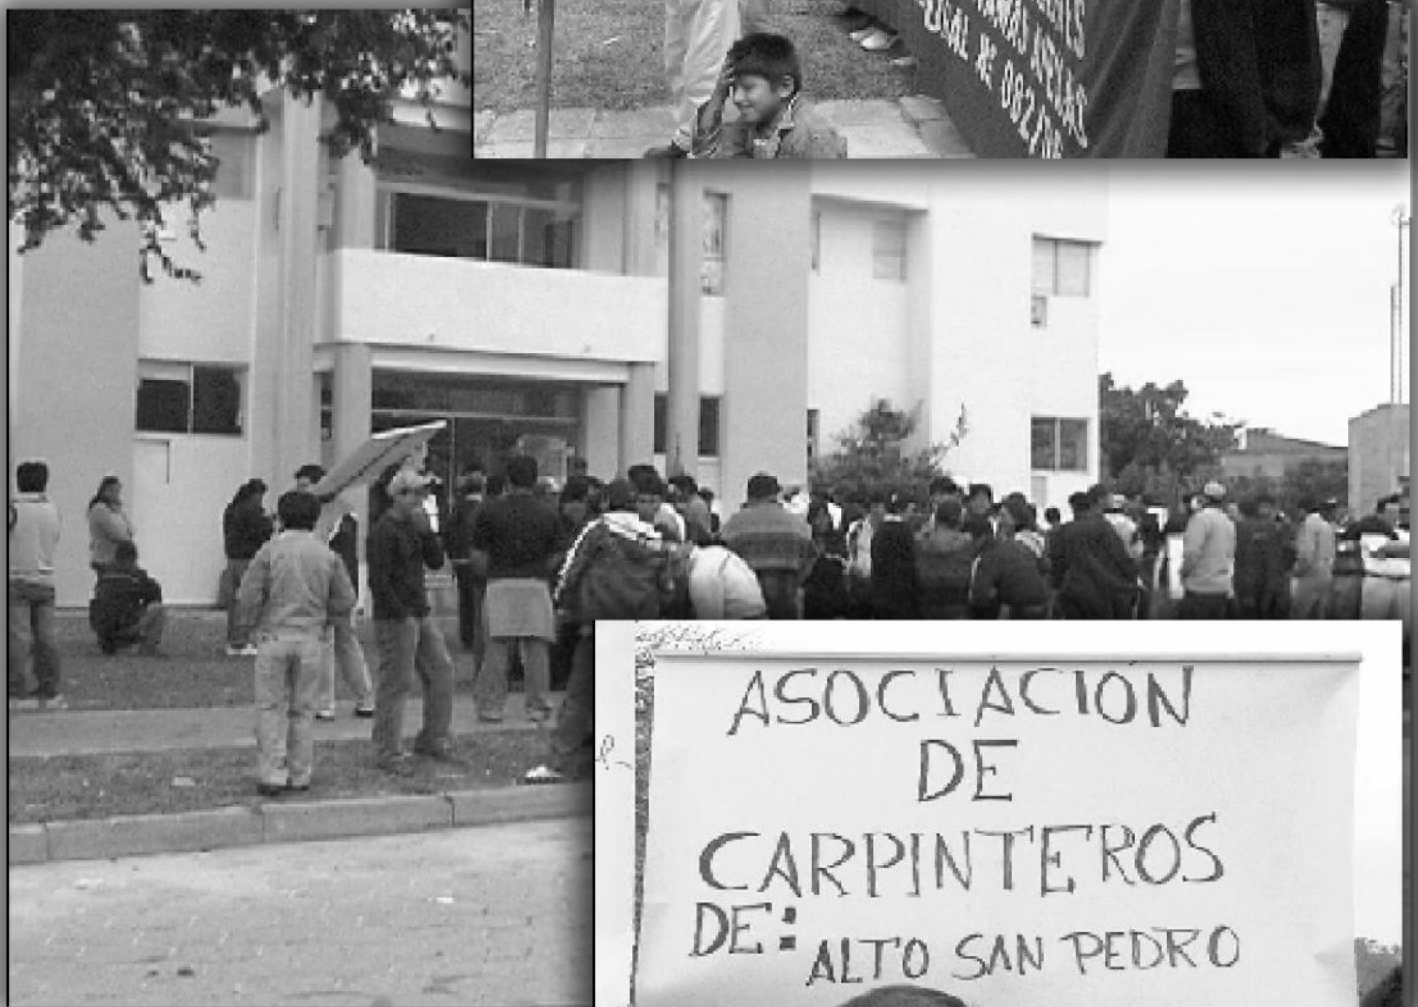 Nº 082/06
ASOCIACIÓN
DE
CARPINTEROS
DE:
ALTO SAN PEDRO